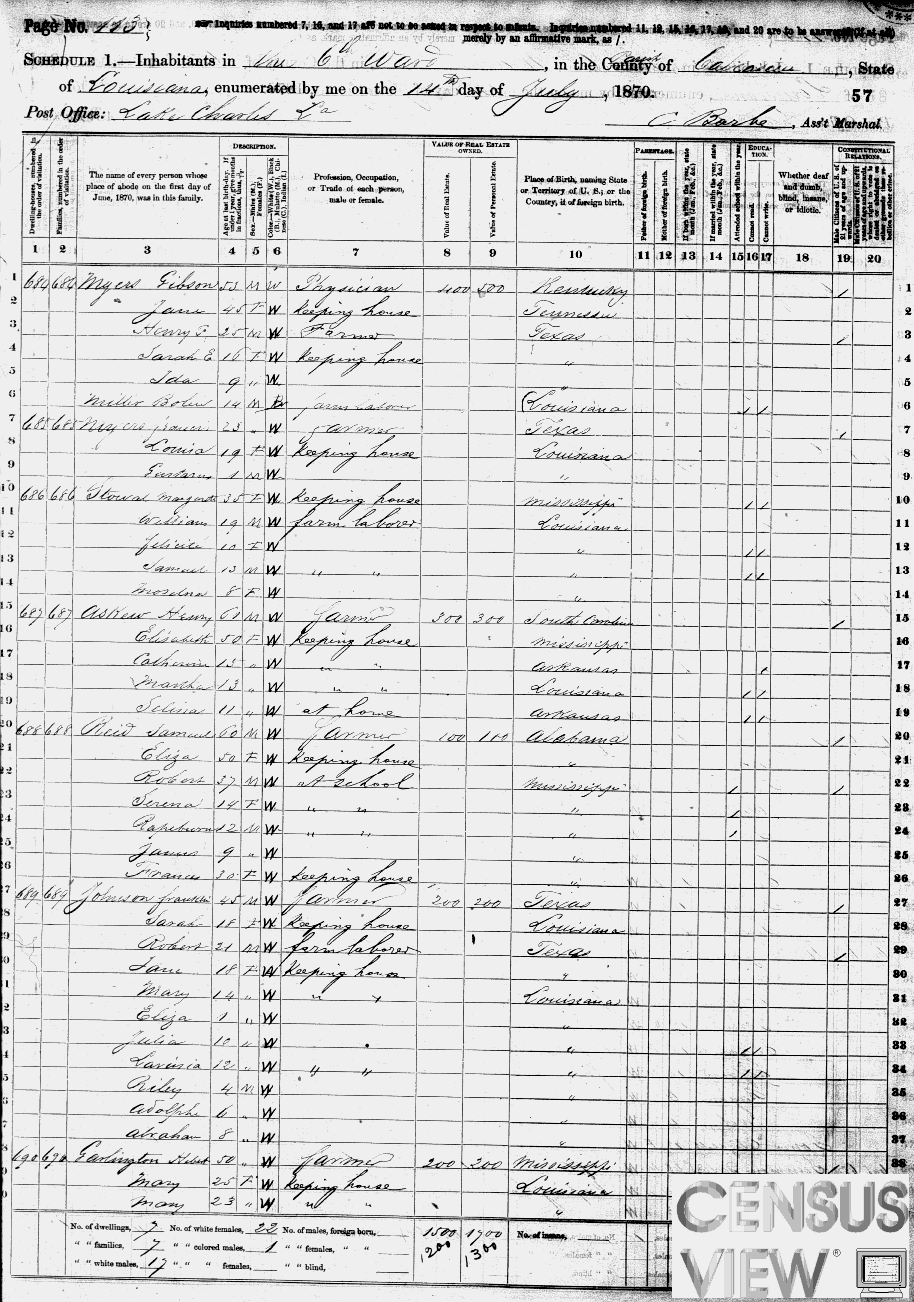 Page No. 123 Inquiries numbered 7, 16, and 17 are not to be asked in respect to infants. Inquiries numbered 11, 12, 15, 16, 17, 19, and 20 are to be answered (if at all)
merely by an affirmative mark, as /.
SCHEDULE 1.—Inhabitants in the 6th Ward, in the County of Parish Calcasieu, State
of Louisiana, enumerated by me on the 14th day of July, 1870. 57
Post Office: Lake Charles La C Barbe, Ass't Marshal.
DESCRIPTION. VALUE OF REAL ESTATE OWNED. PARENTAGE. EDUCATION. CONSTITUTIONAL RELATIONS.
Dwelling-houses, numbered in the order of visitation.
Families, numbered in the order of visitation.
The name of every person whose place of abode on the first day of June, 1870, was in this family.
Age at last birth-day. If under 1 year, give months in fractions, thus, 3/12
Sex.—Males (M.), Females (F.)
Color.—White (W.), Black (B.), Mulatto (M.), Chinese (C.), Indian (I.)
Profession, Occupation, or Trade of each person, male or female.
Value of Real Estate.
Value of Personal Estate.
Place of Birth, naming State or Territory of U. S.; or the Country, if of foreign birth.
Father of foreign birth.
Mother of foreign birth.
If born within the year, state month (Jan., Feb., &c.)
If married within the year, state month (Jan., Feb., &c.)
Attended school within the year.
Cannot read.
Cannot write.
Whether deaf and dumb, blind, insane, or idiotic.
Male Citizens of U. S. of 21 years of age and upwards.
1 2 3 4 5 6 7 8 9 10 11 12 13 14 15 16 17 18 19 20
1 684 684 Myers Gibson 53 M W Physician 400 500 Kentucky / 1
2 Jane 45 F W Keeping house Tennessee 2
3 Henry F 25 M W Farmer Texas / 3
4 Sarah E 16 F W Keeping house " 4
5 Ida 9 " W " 5
6 Miller 14 M farm laborer Louisiana / / 6
7 685 685 Myers 23 " W farmer Texas / 7
8 Louisa 19 F W Keeping house Louisiana 8
9 Gustavus 1 M W " 9
10 686 686 Margarete 35 F W Keeping house Mississippi / / 10
11 William 19 M W farm laborer Louisiana 11
12 Felicite 10 F W " / / 12
13 Samuel 13 M W " " " / / 13
14 8 F W " 14
15 687 687 Askew Henry 61 M W farmer 300 300 South Carolina / 15
16 Elisabeth 50 F W Keeping house Mississippi 16
17 Catherine 15 " W " " Arkansas / 17
18 Martha 13 " W " " Louisiana / / 18
19 Selina 11 " W at home Arkansas / / 19
20 688 688 Reid Samuel 60 M W Farmer 100 100 Alabama / 20
21 Eliza 50 F W Keeping house " 21
22 Robert 37 M W at school Mississippi / / 22
23 Serena 14 F W " " " / 23
24 12 M W " " " / 24
25 James 9 " W " 25
26 Frances 30 F W Keeping house " 26
27 689 689 Johnson Franklin 45 M W Farmer 200 200 Texas / 27
28 Sarah 18 F W Keeping house Louisiana 28
29 Robert 21 M W farm laborer Texas / 29
30 Jane 18 F W Keeping house " 30
31 Mary 14 " W " " Louisiana 31
32 Eliza 1 " W " 32
33 Julia 10 " W " / / 33
34 12 " W " " " / / 34
35 Riley 4 M W " 35
36 Adolphe 6 " W " 36
37 Abraham 8 " W " 37
38 690 690 Garlington 50 " W farmer 200 200 Mississippi / 38
Mary 25 F W Keeping house Louisiana
Mary 23 " W " " "
No. of dwellings, 7 No. of white females, 22 No. of males, foreign born, 1500 1700 No. of insane,
" " families, 7 " " colored males, 1 " " females, " " 1,200 1,300
" " white males, 17 " " " females, " " blind,
CENSUS
VIEW®